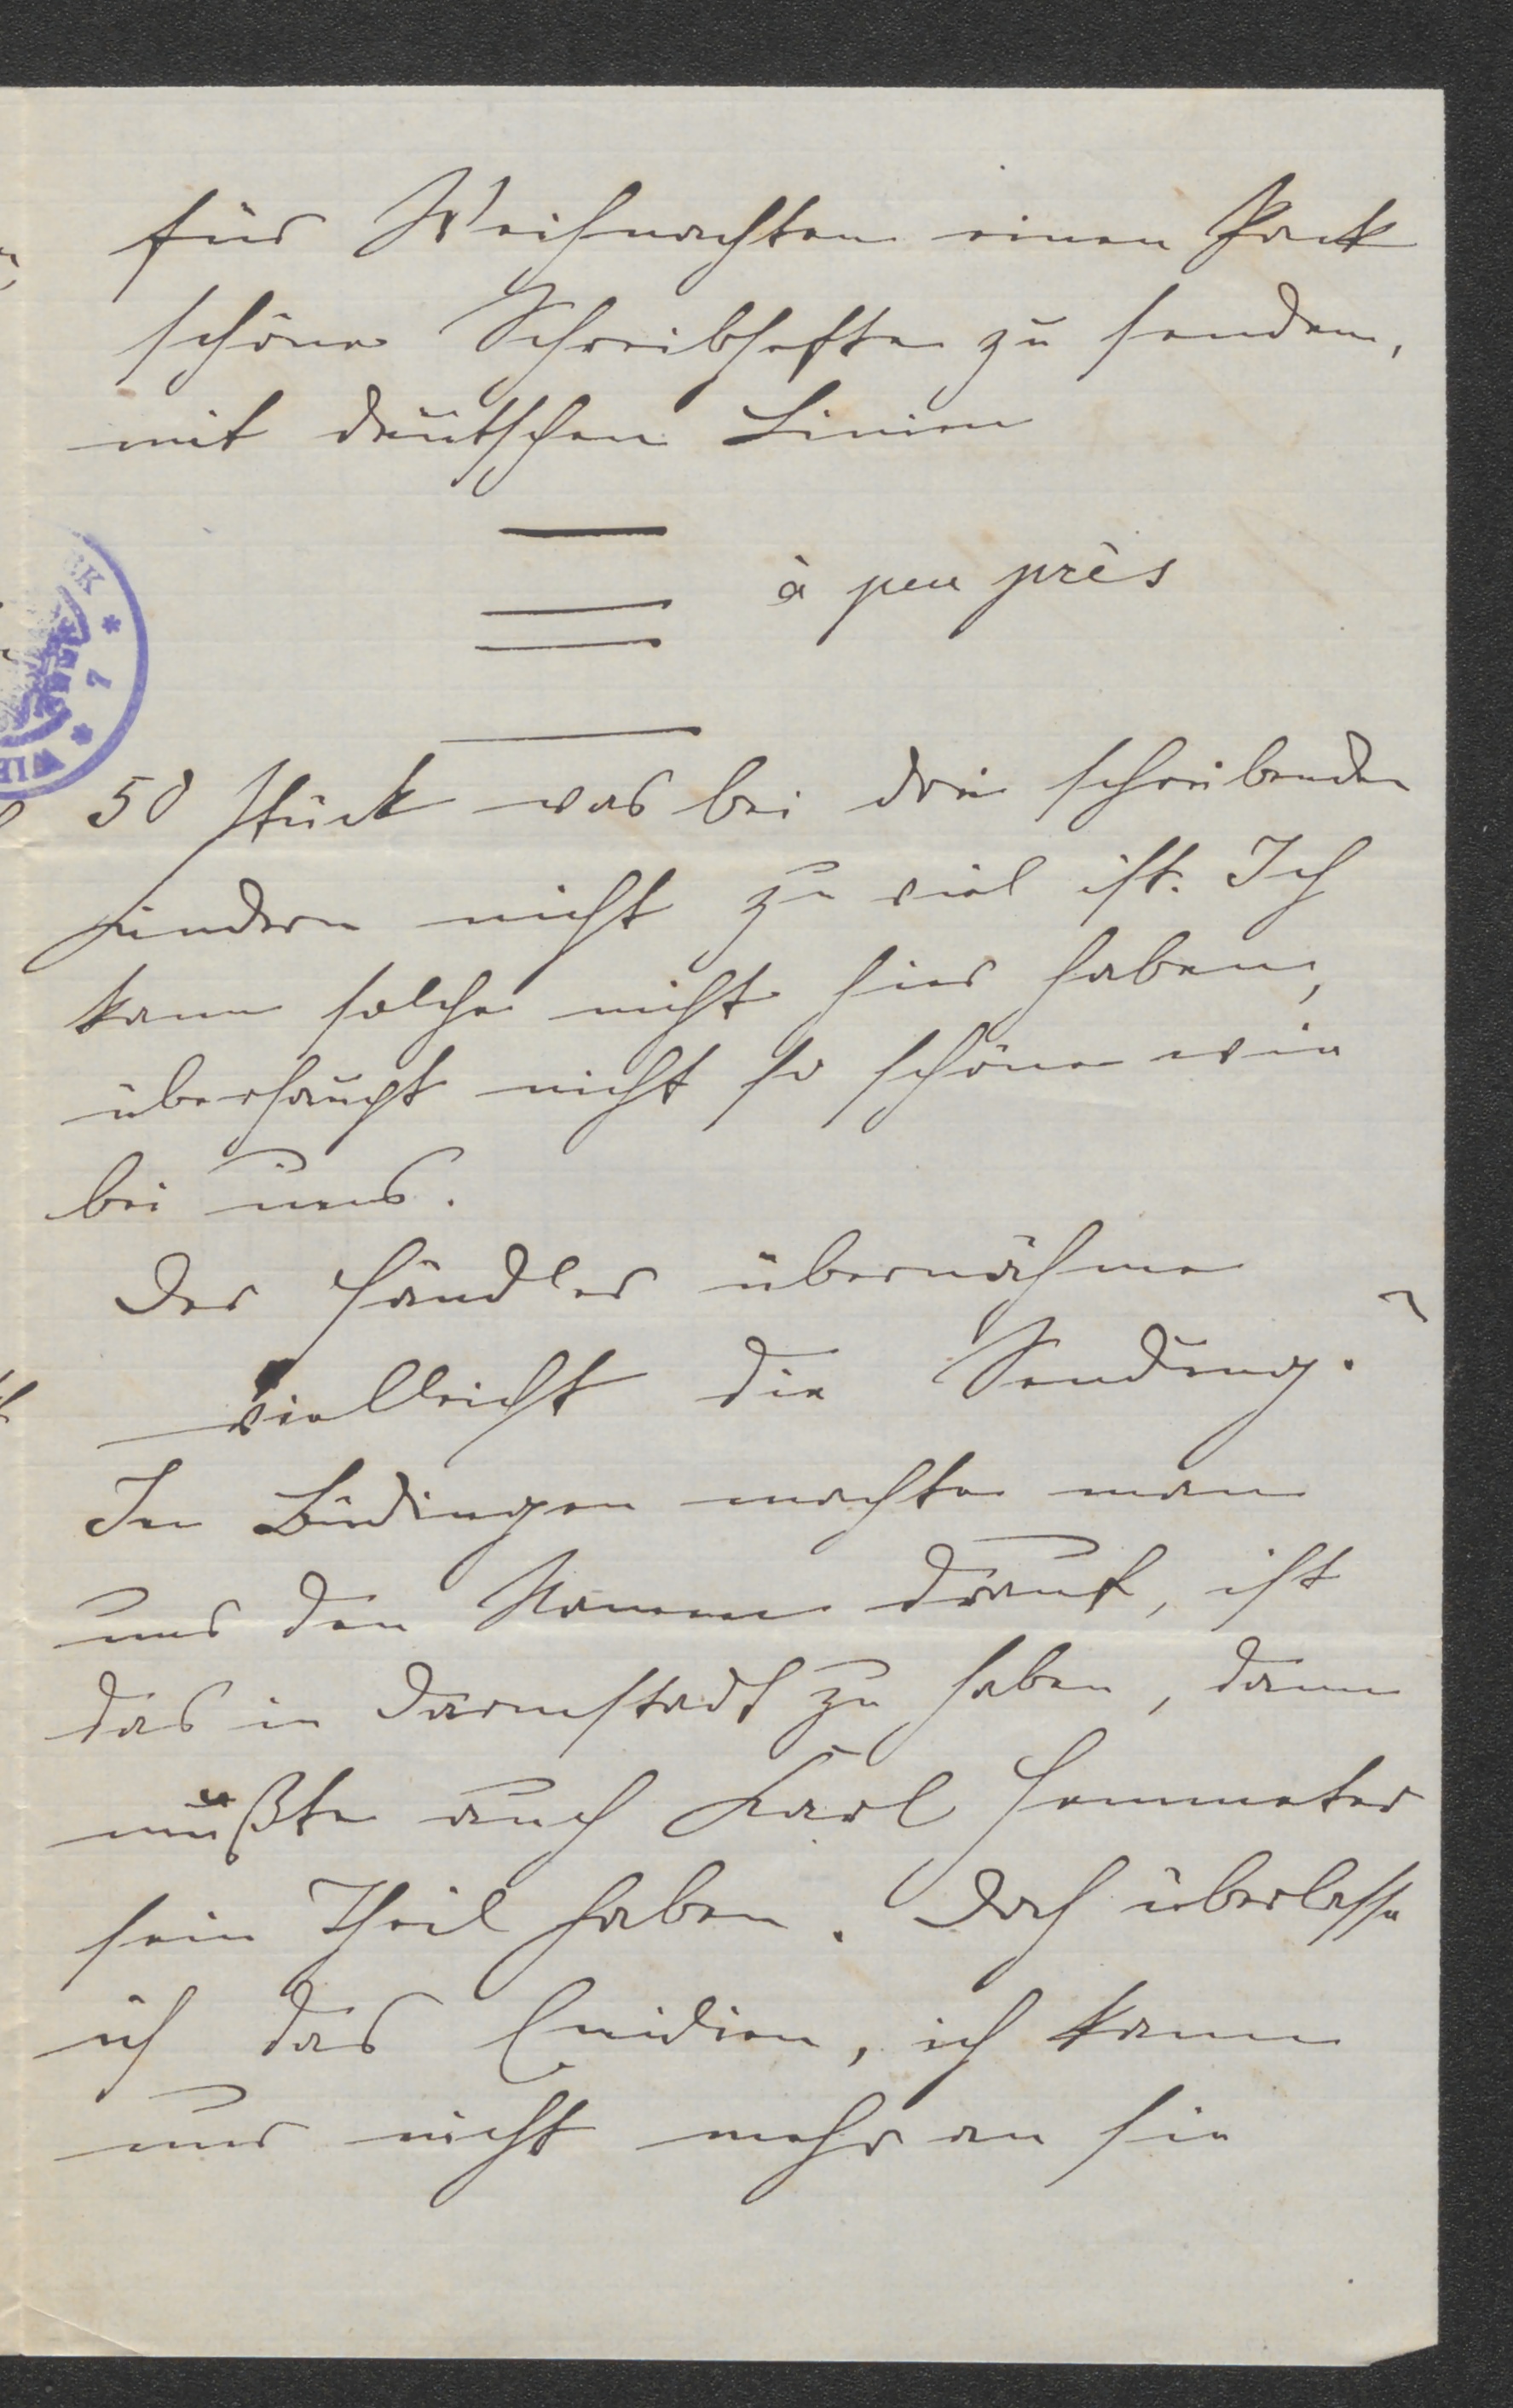 für Weihnachten einen Pack
schöne Schreibhefte zu senden,
mit deutschen Linien
à peu près
50 Stück was bei drei schreibenden
Kindern nicht zu viel ist. Ich
kann solche nicht hier haben,
überhaupt nicht so schöne wie
bei uns.
Der Händler übernähme
vielleicht die Sendung?
In Büdingen machte man
uns den Namen drauf, ist
das in Darmstadt zu haben, dann
müßte auch Karl
sein Theil haben. Doch überlasse
ich das, ich kann
nur nicht mehr an sie